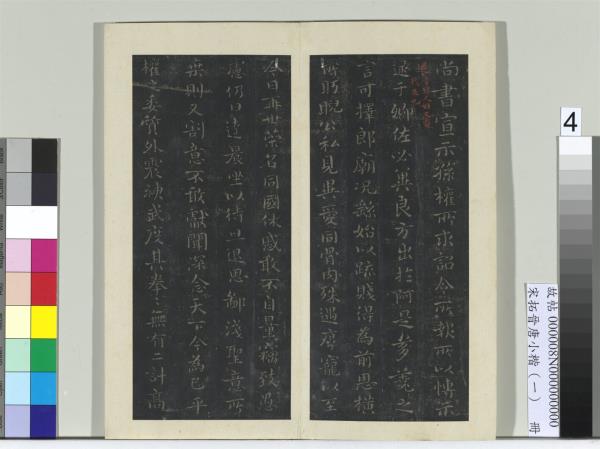 尚書宣示孫權所求詔令所報所以博示
逮于卿佐必冀良方出於阿是芻蕘之
言可擇郎廟況繇始以疏賤得為前恩橫
所盻睨公私見異愛同骨肉殊遇厚寵以至
今日再世榮名同國休慼敢不自量竊致愚
慮仍日達晨坐以待旦退思鄙淺聖意所
棄則又割意不敢獻聞深念天下今為已平
權之委質外震神武度其拳〻無有二計高
4
故帖 000008N000000000
宋拓晉唐小楷(一) 冊